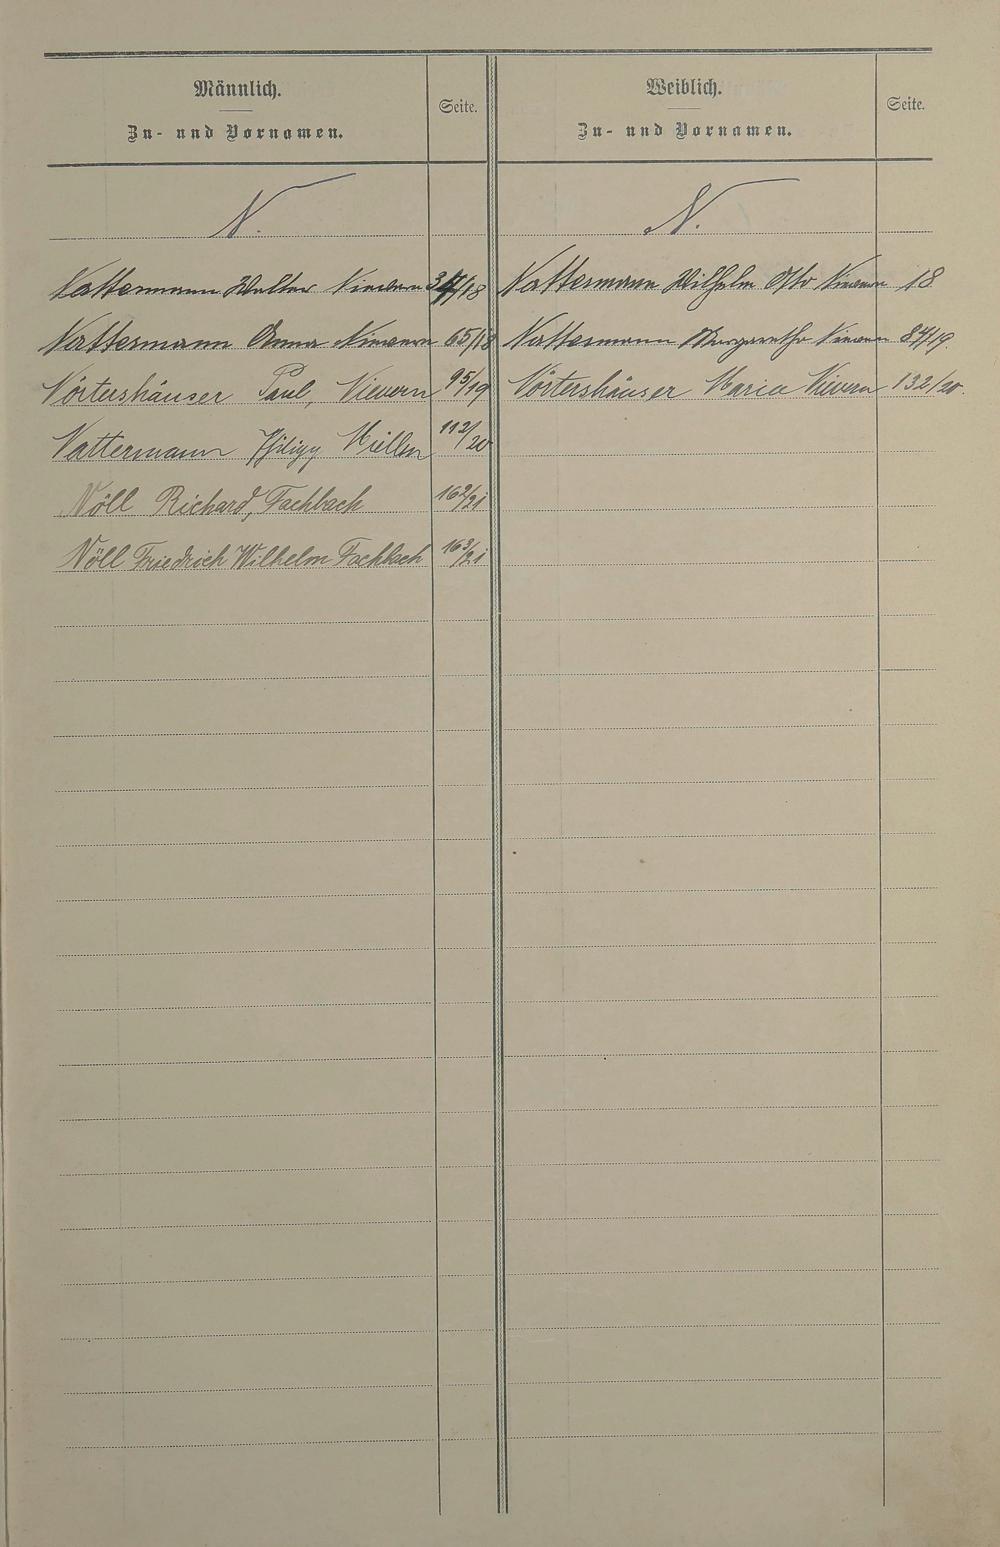 Männlich.
Zu- und Vornamen.
Seite.
N.
Nattermann Walter Nievern 34/18
Nattermann Anna Nievern 65/18
Nörtershäuser Paul, Nievern 95/19
Nattermann Philipp Miellen 112/20
Nöll Richard, Fachbach 162/21
Nöll Friedrich Wilhelm Fachbach 163/21
Weiblich.
Zu- und Vornamen.
Seite.
N.
Nattermann Wilhelm Otto Nievern 18
Nattermann Margarethe Nievern 84/19.
Nörtershäuser Maria Nievern 132/20.